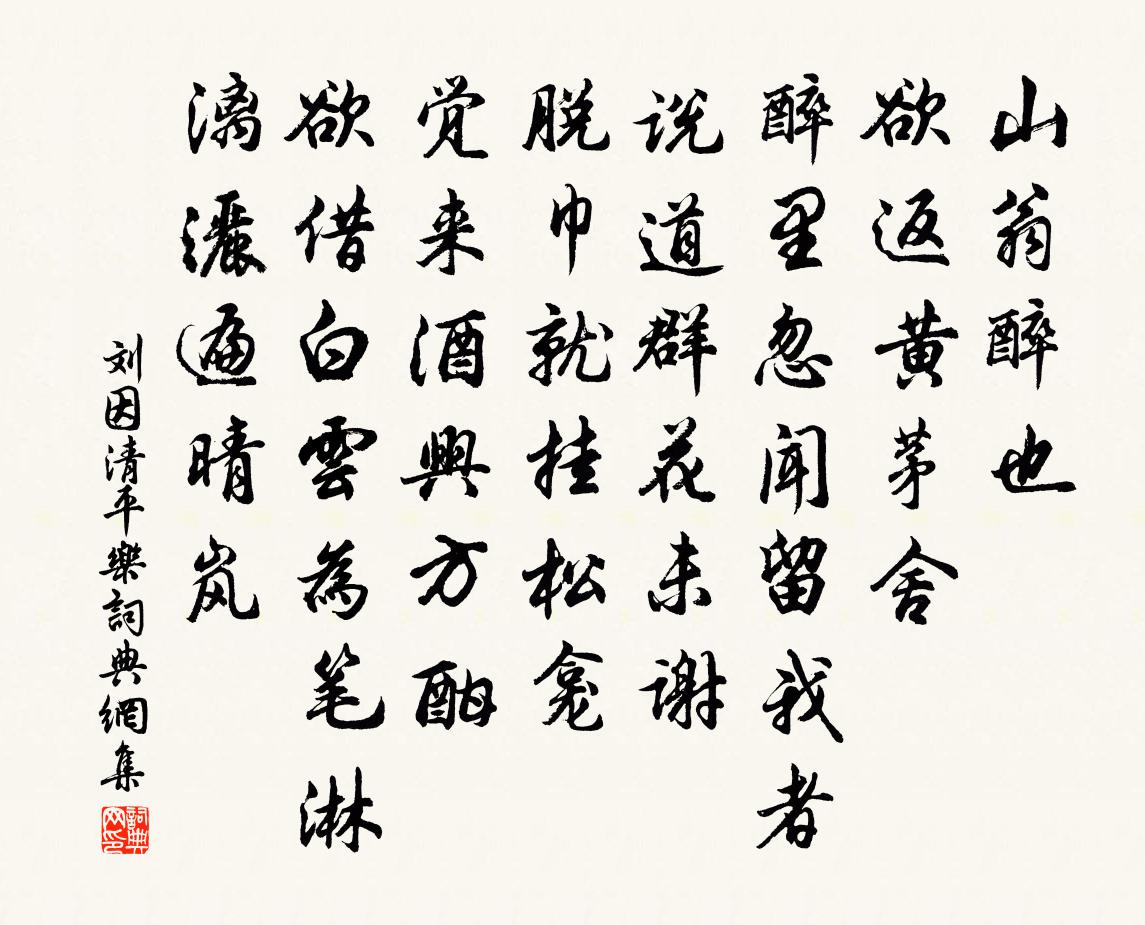 山翁醉也
欲返黄茅舍
醉里忽闻留我者
说道群花未谢
脱巾就挂松龛
觉来酒興方酣
欲借白雲為笔淋
漓灑遍晴岚
刘因清平樂詞典網集
詞典网印